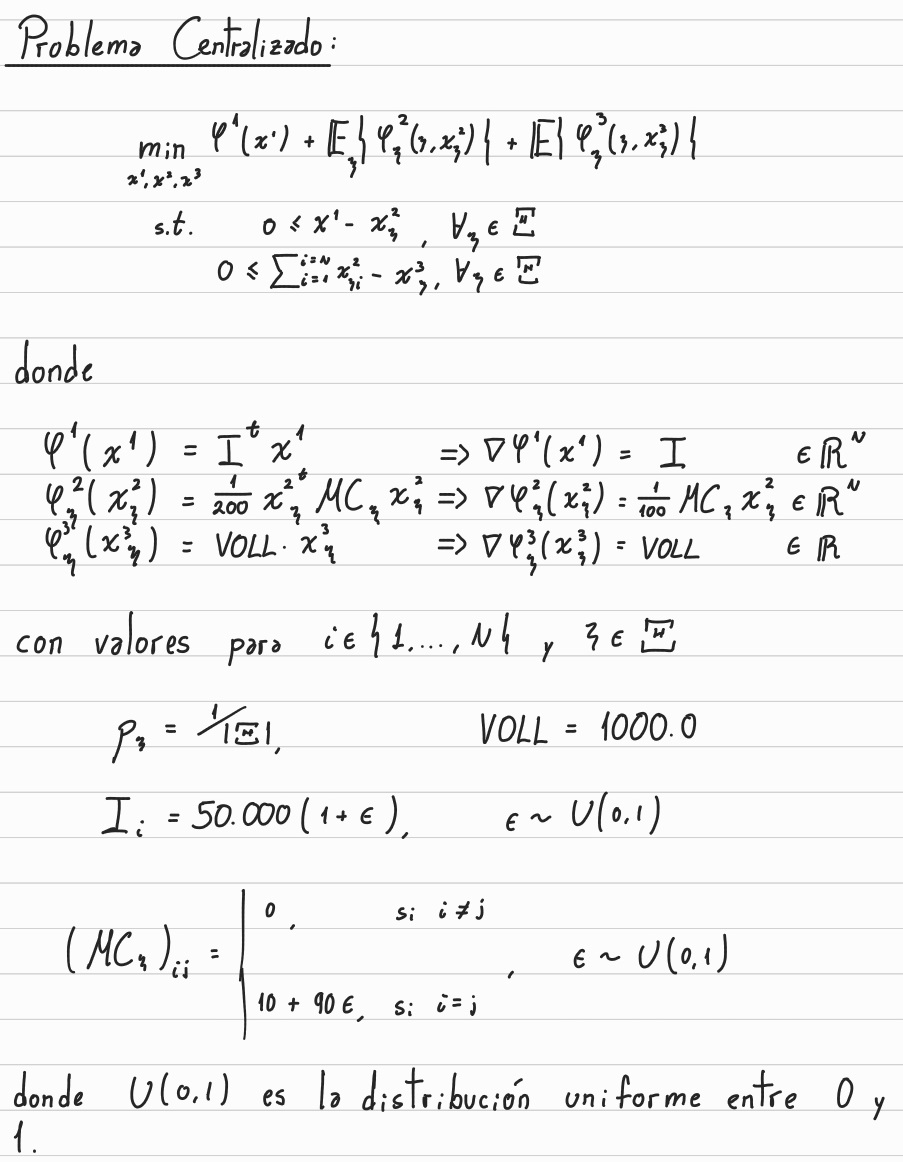 Problema Centralizado:
min φ¹(x¹) + 𝔼_ξ{φ²_ξ(ξ,x²_ξ)} + 𝔼{φ³_ξ(ξ,x²_ξ)}
x¹,x²,x³
s.t. 0 ≤ x¹ - x²_ξ , ∀ξ ∈ Ξ
0 ≤ ∑_{i=1}^{i=N} x²_{ξi} - x³_ξ, ∀ξ ∈ Ξ
donde
φ¹(x¹) = I^t x¹ => ∇φ¹(x¹) = I ∈ ℝ^N
φ²_ξ(x²_ξ) = 1/200 x²_ξ^t MC_ξ x²_ξ => ∇φ²_ξ(x²_ξ) = 1/100 MC_ξ x²_ξ ∈ ℝ^N
φ³_ξ(x³_ξ) = VOLL · x³_ξ => ∇φ³_ξ(x³_ξ) = VOLL ∈ ℝ
con valores para i ∈ {1,...,N} y ξ ∈ Ξ
p_ξ = 1/|Ξ|, VOLL = 1000.0
I_i = 50.000(1 + ε), ε ~ U(0,1)
0, si i ≠ j
(MC_ξ)_ij = , ε ~ U(0,1)
10 + 90ε, si i = j
donde U(0,1) es la distribución uniforme entre 0 y
1.